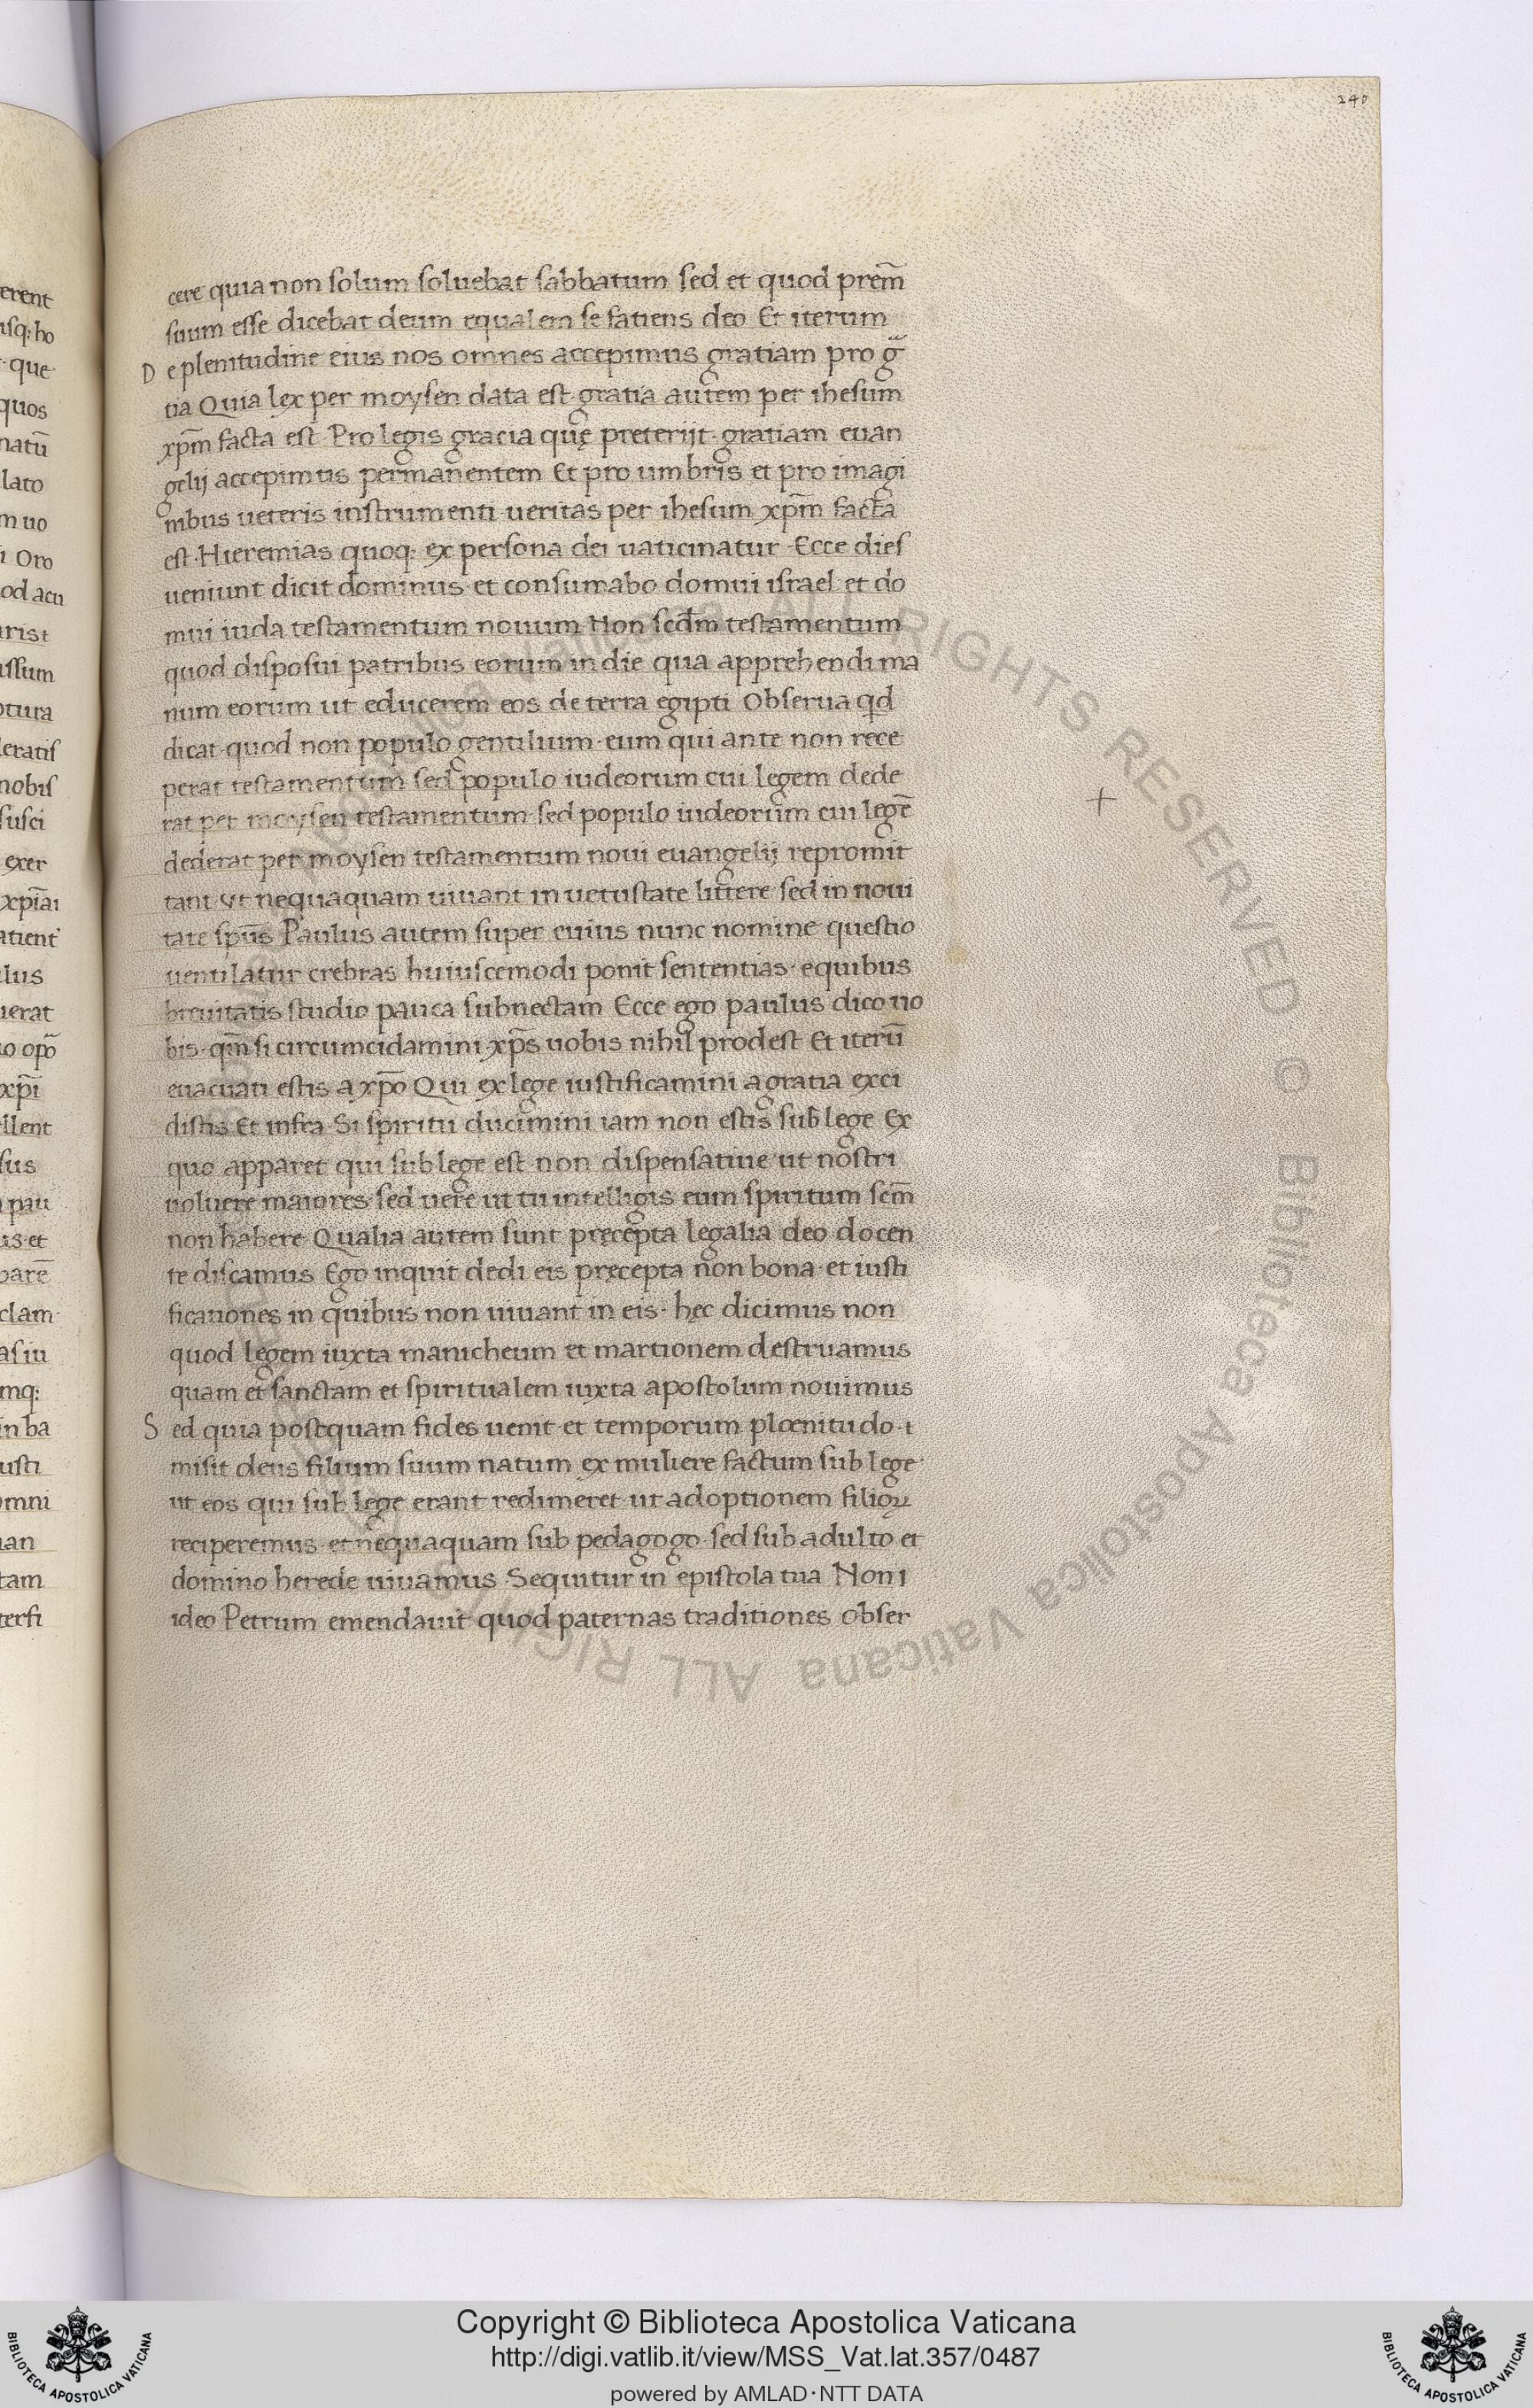 240
cere quia non solum soluebat sabbatum sed et quod prem̄
suum esse dicebat deum equalem se fatiens deo Et iterum
D e plenitudine eius nos omnes accepimus gratiam pro gᷓ
tia Quia lex per moysen data est gratia autem per ihesum
xpm̄ facta est· Pro legis gracia quę preterijt· gratiam euan
gelij accepimus permanentem Et pro umbris et pro imagi
nibus ueteris instrumenti ueritas per ihesum xpm̄ facta
est· Hieremias quoq: ex persona dei uaticinatur· Ecce dies
ueniunt dicit dominus et consumabo domui israel et do
mui iuda testamentum nouum Non sedm̄ testamentum
quod disposui patribus eorum in die qua apprehendi ma
num eorum ut educerem eos de terra egipti Obserua qd
dicat quod non populo gentilium· eum qui ante non rece
perat testamentum sed populo iudeorum cui legem dede
rat per moysen testamentum· sed populo iudeorum cui legē
dederat per moysen testamentum noui euangelij repromit
tant ut nequaquam uiuant in uetustate littere sed in noui
tate spūs Paulus autem super cuius nunc nomine questio
uentilatur crebras huiuscemodi ponit sententias· e quibus
breuitatis studio pauca subnectam Ecce ego paulus dico uo
bis· qm̄ si circumcidamini xps̄ uobis nihil prodest Et iterū
euacuati estis a xpō Qui ex lege iustificamini a gratia exci
distis Et infra Si spiritu ducimini iam non estis sub lege Ex
quo apparet qui sub lege est non dispensatiue ut nostri
uoluere maiores sed uere ut tu intelligis eum spiritum scm̄
non habere Qualia autem sunt pręcepta legalia deo docen
te discamus Ego inquit dedi eis pręcepta non bona· et iusti
ficationes in quibus non uiuant in eis· hęc dicimus non
quod legem iuxta manicheum et martionem destruamus
quam et sanctam et spiritualem iuxta apostolum nouimus
S ed quia postquam fides uenit et temporum plœnitudo·i
misit deus filium suum natum ex muliere factum sub lege
ut eos qui sub lege erant redimeret ut adoptionem filioꝝ
reciperemus· et nequaquam sub pedagogo· sed sub adulto et
domino herede uiuamus Sequitur in epistola tua Non i
ideo Petrum emendauit quod paternas traditiones obser
+
erent
usq: ho
que
quos
natū
lato
m uo
Oro
od acu
urist
ussum
otura
leratis
nobis
susci
exer
xpīai
atient
lus
uerat
uo opō
xpī
llent
sus
pau
us et
parē
clam
as iu
mq:
in ba
usti
omni
uan
tam
terfi
Biblioteca Apostolica Vaticana ALL RIGHTS RESERVED © Biblioteca Apostolica Vaticana ALL RIGHTS RESERVED ©
Copyright © Biblioteca Apostolica Vaticana
http://digi.vatlib.it/view/MSS_Vat.lat.357/0487
powered by AMLAD·NTT DATA
BIBLIOTECA APOSTOLICA VATICANA
BIBLIOTECA APOSTOLICA VATICANA